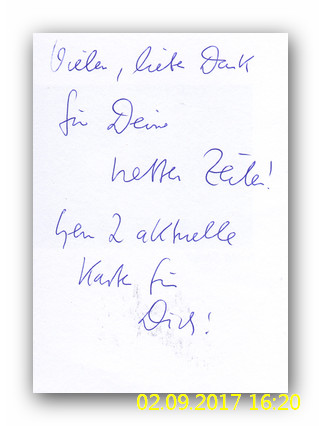 Vielen, lieben Dank
für Deine
netten Zeilen!
2 aktuelle
Karten für
Dich!
02.09.2017 16:20